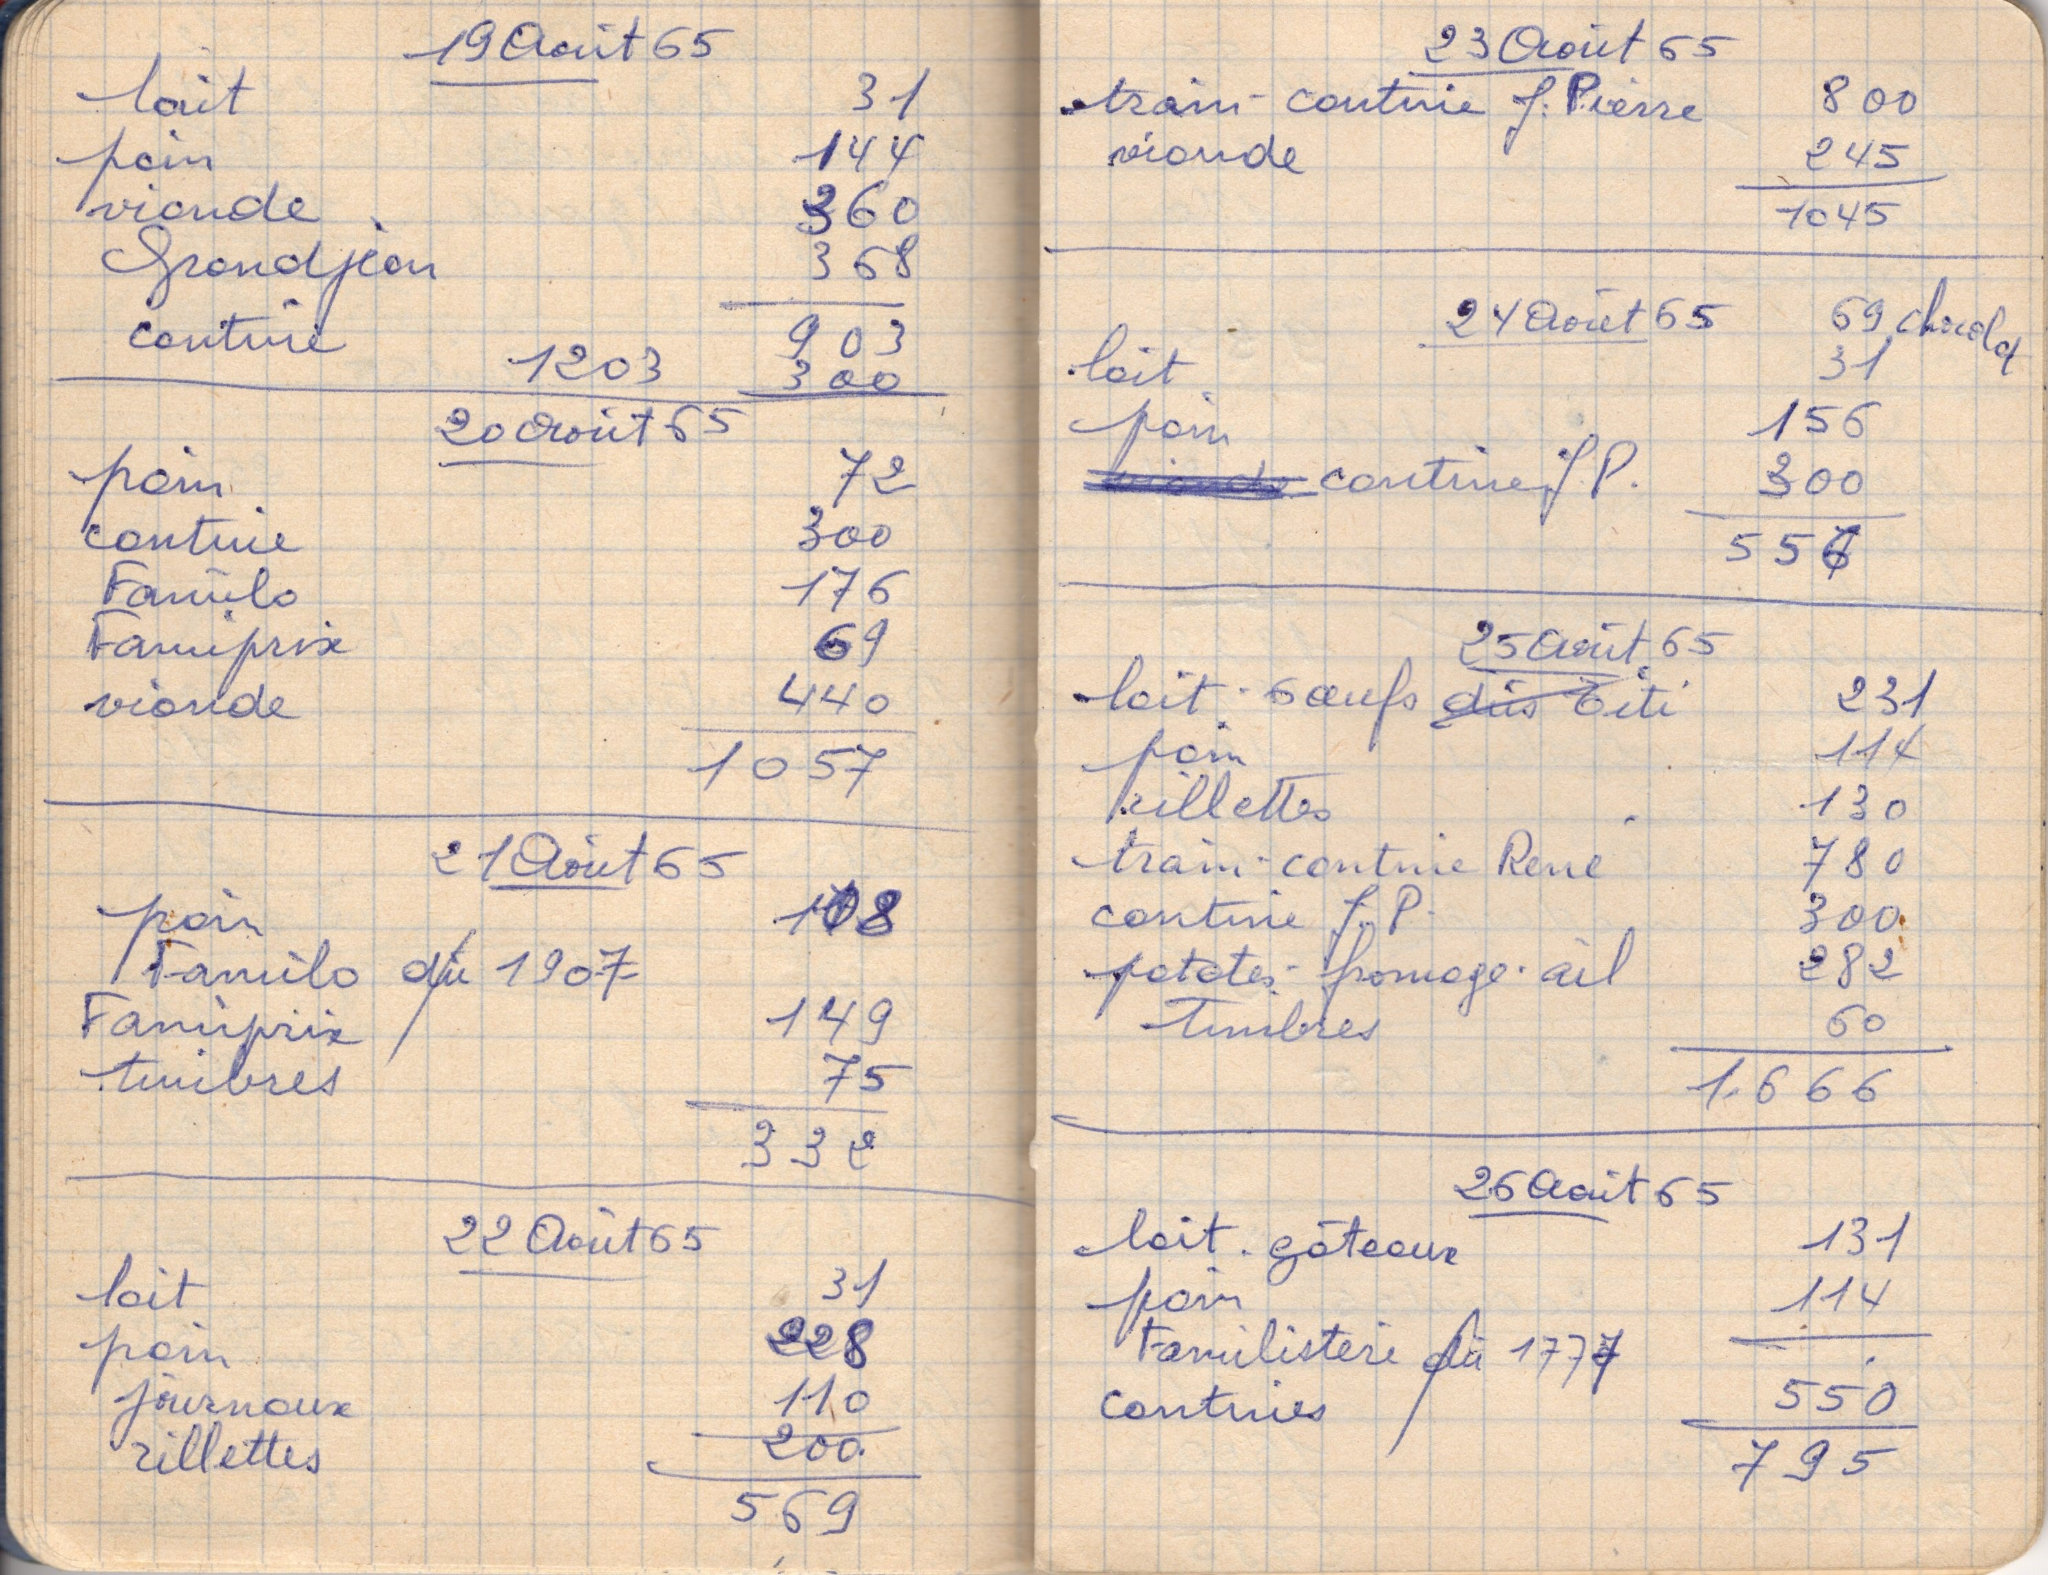 19 Août 65
lait 31
pain 144
viande 360
Grandjean 368
903
cantine 1203 300
20 Août 65
pain 72
cantine 300
Familo 176
Familprix 69
viande 440
1057
21 Août 65
pain 108
Familo dû 1907
Familprix 149
timbres 75
332
22 Août 65
lait 31
pain 228
journaux 110
rillettes 200
569
23 Août 65
train - cantine J. Pierre 800
viande 245
1045
24 Août 65 69 chocolat
lait 31
pain 156
viande cantine J P. 300
556
25 Août 65
lait - 6 œufs dûs Titi 231
pain 114
rillettes 130
train - cantine René 780
cantine J. P. 300
patates - fromage - ail 282
Timbres 60
1.666
26 Août 65
lait - gâteaux 131
pain 114
Familistère dû 1777
cantines 550
795